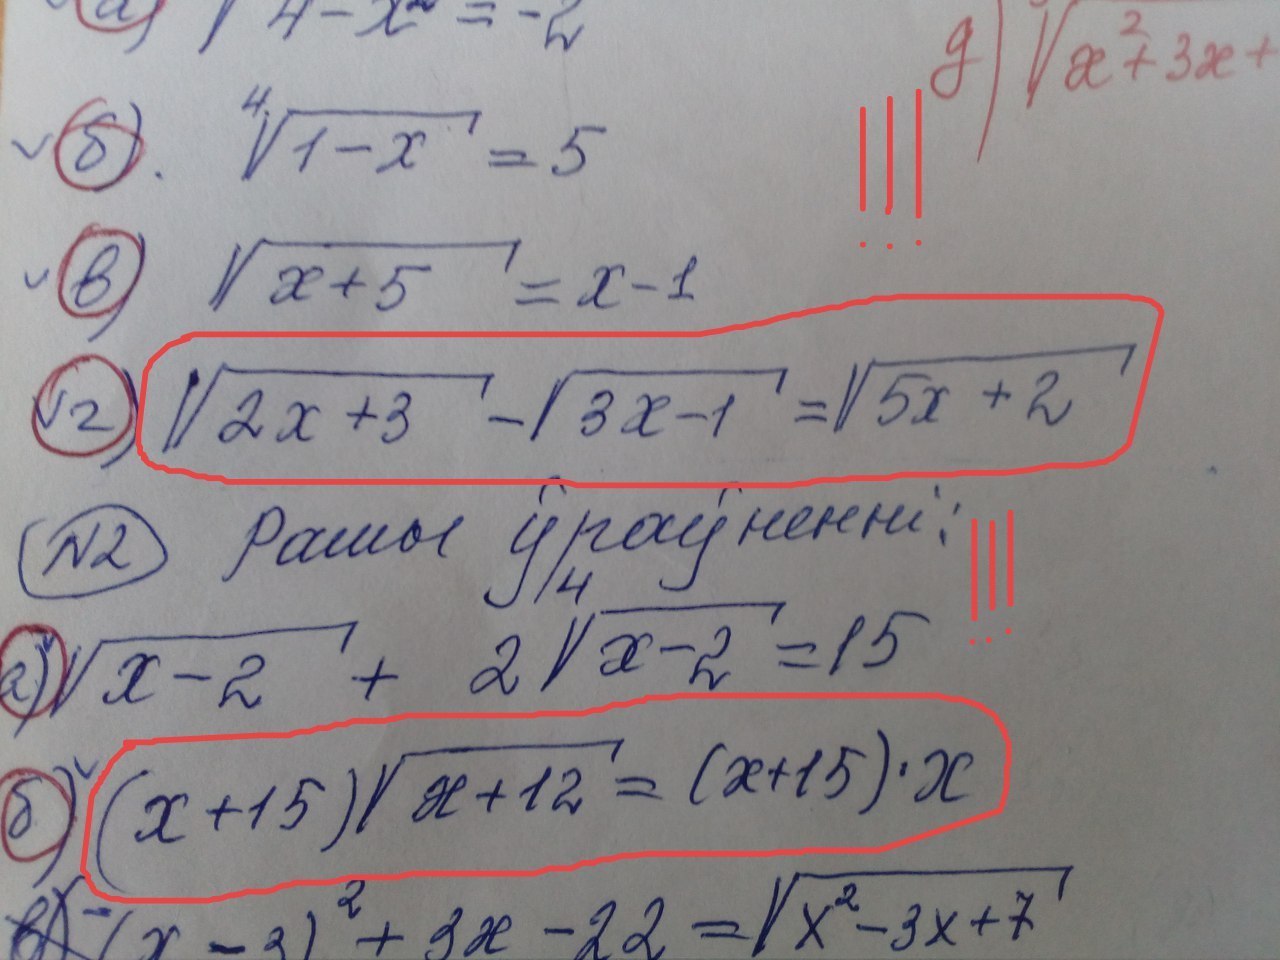 а) √4-x² = -2
д) √x²+3x+
б). ⁴√1-x = 5
в) √x+5 = x-1
г) √2x+3 - √3x-1 = √5x+2
!!!
N2 Рашыць ўраўненні:
!!!
а) √x-2 + 2 ⁴√x-2 = 15
б) (x+15)√x+12 = (x+15)·x
в) (x-3)² + 3x - 22 = √x²-3x+7